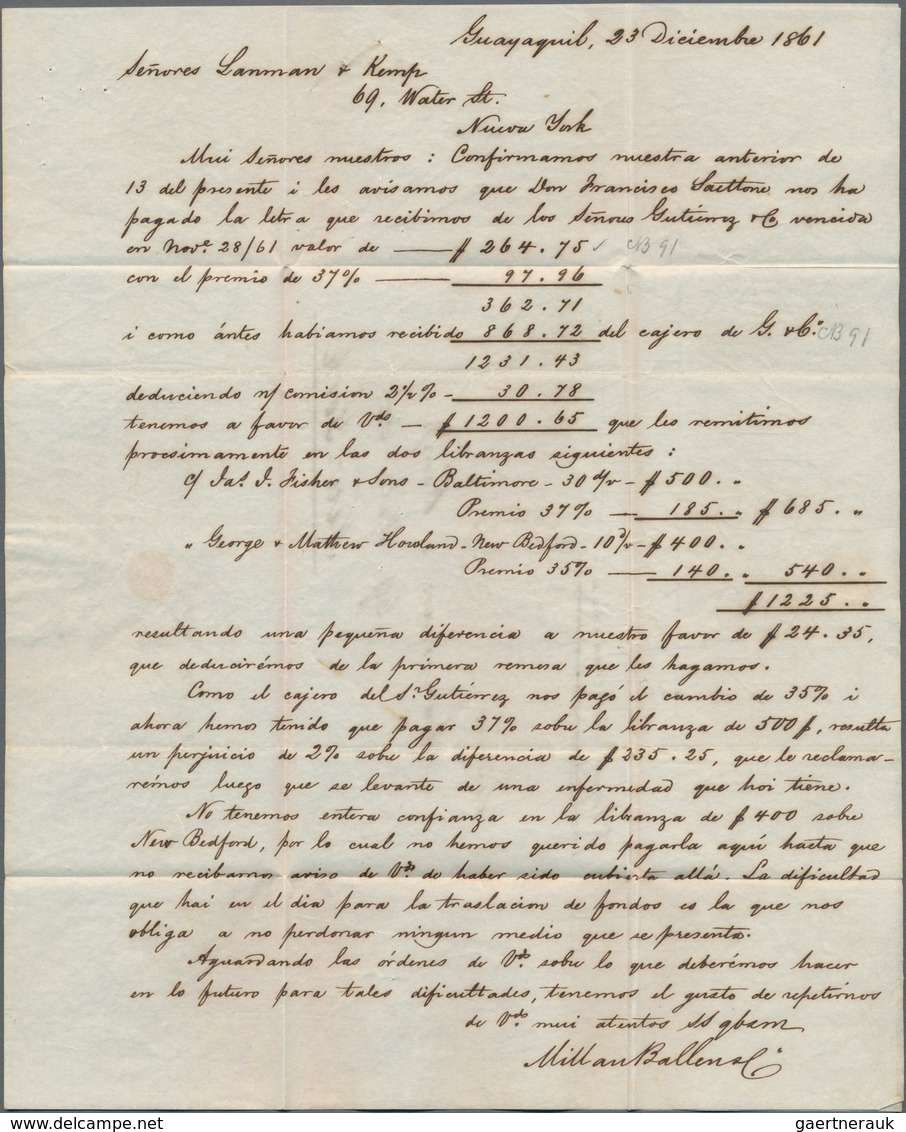 Guayaquil, 23 Diciembre 1861
Señores Lanman & Kemp
69, Water St.
Nueva York
Mui Señores nuestros : Confirmamos nuestra anterior de
13 del presente i les avisamos que Don Francisco Saettone nos ha
pagado la letra que recibimos de los Señores Gutiérrez & Co vencida
en Nove. 28/61 valor de — $ 264.75 ✓ CB 91
con el premio de 37% — 97.96
362.71
i como ántes habiamos recibido 868.72 del cajero de G. & Ca. CB 91
1231.43
deduciendo n/ comision 2½% - 30.78
tenemos a favor de Vds — $ 1200.65 que les remitimos
procsimamente en las dos libranzas siguientes :
c/ Jas. I. Fisher & Sons - Baltimore - 30 d/v - $ 500. "
Premio 37% — 185. " $ 685. "
" George & Mathew Howland - New Bedford - 10 d/v - $ 400. "
Premio 35% — 140. " 540. "
$ 1225. "
resultando una pequeña diferencia a nuestro favor de $ 24.35,
que deducirémos de la primera remesa que les hagamos.
Como el cajero del Sr. Gutiérrez nos pagó el cambio de 35% i
ahora hemos tenido que pagar 37% sobre la libranza de 500 $, resulta
un perjuicio de 2% sobre la diferencia de $ 235.25, que le reclama-
rémos luego que se levante de una enfermedad que hoi tiene.
No tenemos entera confianza en la libranza de $ 400 sobre
New Bedford, por lo cual no hemos querido pagarla aquí hasta que
no recibamos aviso de Vds. de haber sido cubierta allá. La dificultad
que hai en el dia para la traslacion de fondos es la que nos
obliga a no perdonar ningun medio que se presenta.
Aguardando las órdenes de Vds. sobre lo que deberémos hacer
en lo futuro para tales dificultades, tenemos el gusto de repetirnos
de Vds. mui atentos SS qbsm
Millan Ballen & Ca.
gaertnerauk